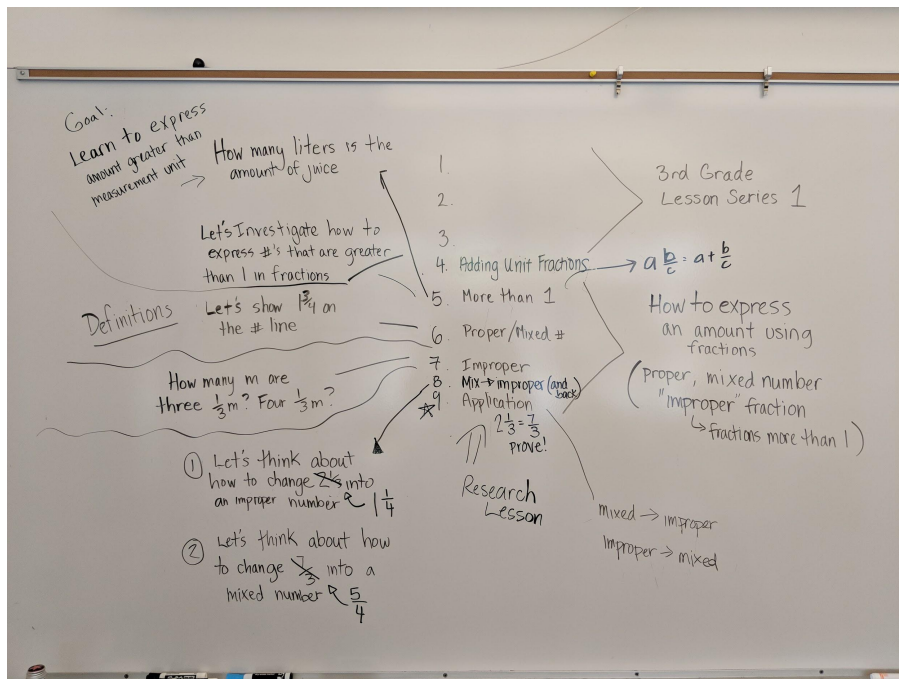 Goal:
Learn to express
amount greater than
measurement unit
How many liters is the
amount of juice
Let's Investigate how to
express #'s that are greater
than 1 in fractions
Let's show 1 3/4 on
the # line
Definitions
How many m are
three 1/3 m? Four 1/3 m?
① Let's think about
how to change into
an improper number 1 1/4
② Let's think about how
to change 7/3 into a
mixed number 5/4
1.
2.
3.
4. Adding Unit Fractions → a b/c = a + b/c
5. More than 1
6. Proper/Mixed #
7. Improper
8. Mix → improper (and back)
☆ 9. Application
2 1/3 = 7/3
prove!
Research
Lesson
3rd Grade
Lesson Series 1
How to express
an amount using
fractions
(proper, mixed number
"improper" fraction
↳ fractions more than 1)
mixed → improper
improper → mixed